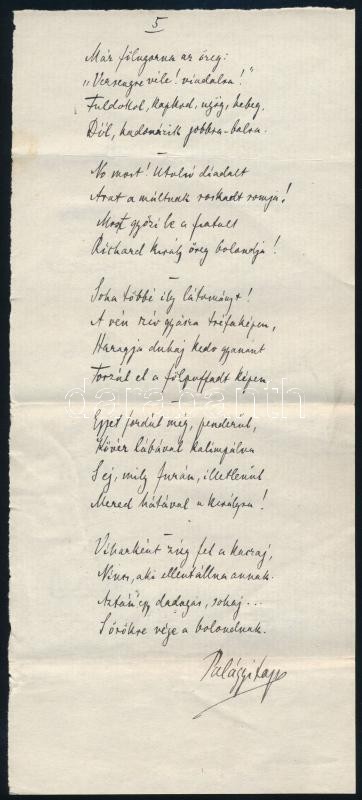 5
Már fölugorna az öreg:
"Versengve véle! viadalra!"
Fuldokol, kapkod, nyög, hebeg,
Dől, hadonázik jobbra-balra.
No most! Utolsó diadalt
Arat a múltnak roskadt romja!
Most győzi le a fiatalt
Richard király öreg bolondja!
Soha többé ily látományt!
A vén szív gyásza tréfaképen,
Haragja duhaj kedv gyanánt
Torzúl el a fölpuffadt képen
Egyet fordúl még, penderűl,
Kövér lábával kalimpálva
S ej, mily furán, illetlenűl
Mered hátával a királyra!
Viharként zúg fel a kacaj,
Nincs, aki ellentállna annak.
Aztán egy dadogás, sóhaj...
S örökre vége a bolondnak.
Palágyi Lajos
darabanth